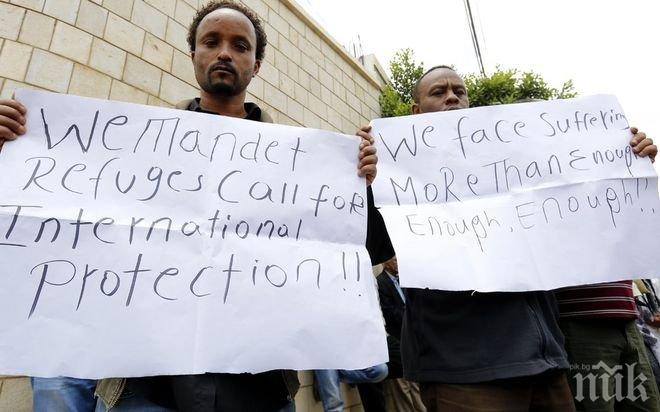 We Mandet
Refuges Call for
International
protection!!
We face Suffering
More Than Enough
Enough, Enough!!,
pik.bg
ПИК